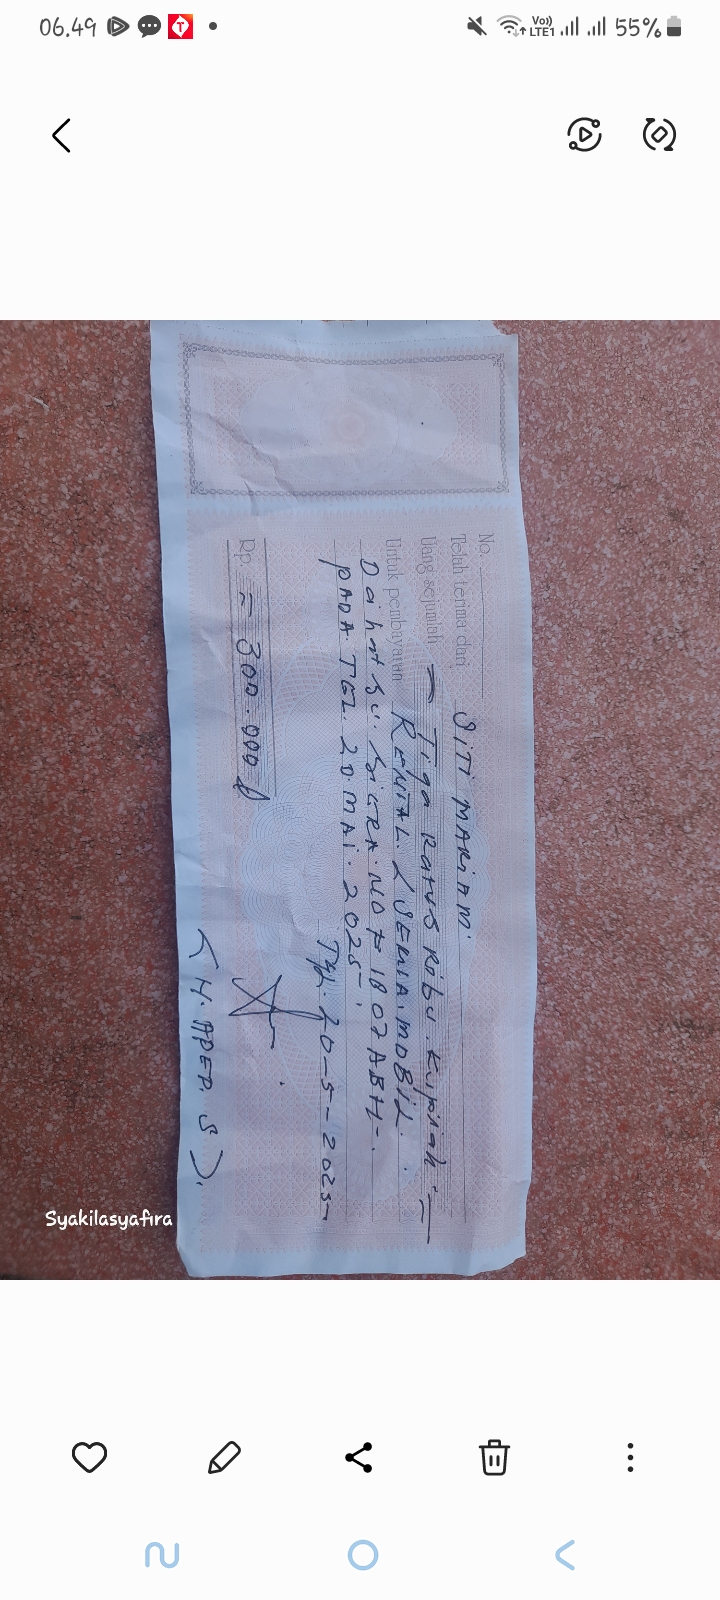 06.49
Vo))
LTE1
55%
No.
Telah terima dari SiTi MARiAM.
Uang sejumlah = Tiga Ratus Ribu. Rupiah =
Untuk pembayaran RENTAL / SEWA. MOBiL.
Daihatsu. SiGRA. NO F 1807 ABH.
PADA. TGL. 20. MAi. 2025.
Tgl. 20-5-2025
Rp. = 300.000
( H. APEP. S ).
Syakilasyafira